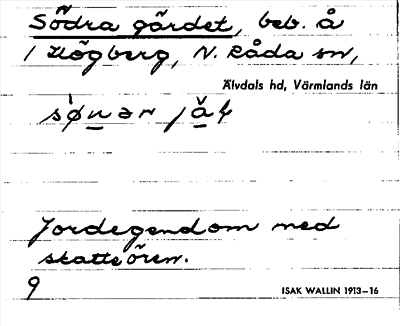 Södra gärdet, beb. å
1 Högberg, N. Råda sn,
Älvdals hd, Värmlands län
Jordegendom med
skatteören.
9
ISAK WALLIN 1913–16